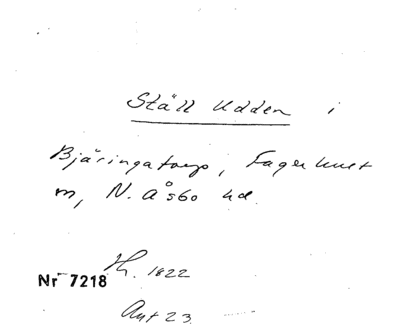 Ställ Udden i
Bjäringatorp, Fagerhult
m, N. Åsbo hd.
Th. 1822
Nr 7218
Ant 23.